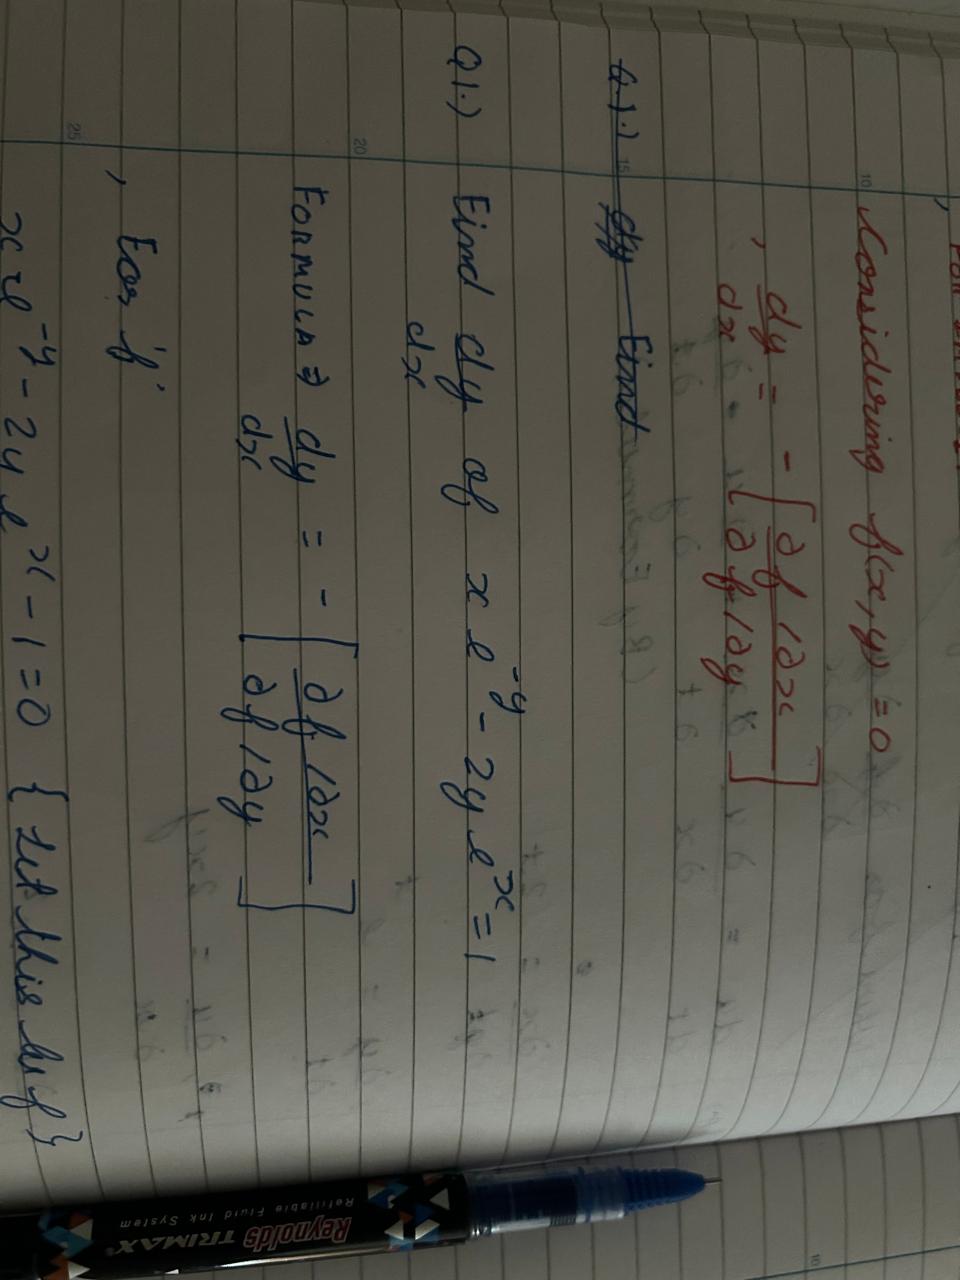 Considering f(x, y) = 0
, dy/dx = - [ ∂f/∂x / ∂f/∂y ]
Q.1.) dy Find
Q1.) Find dy/dx of x e^-y - 2y e^x = 1
Formula ⇒ dy/dx = - [ ∂f/∂x / ∂f/∂y ]
, For 'f'
x e^-y - 2y e^x - 1 = 0 { Let this be f }
10
15
20
25
Reynolds TRIMAX
Refillable Fluid Ink System
10